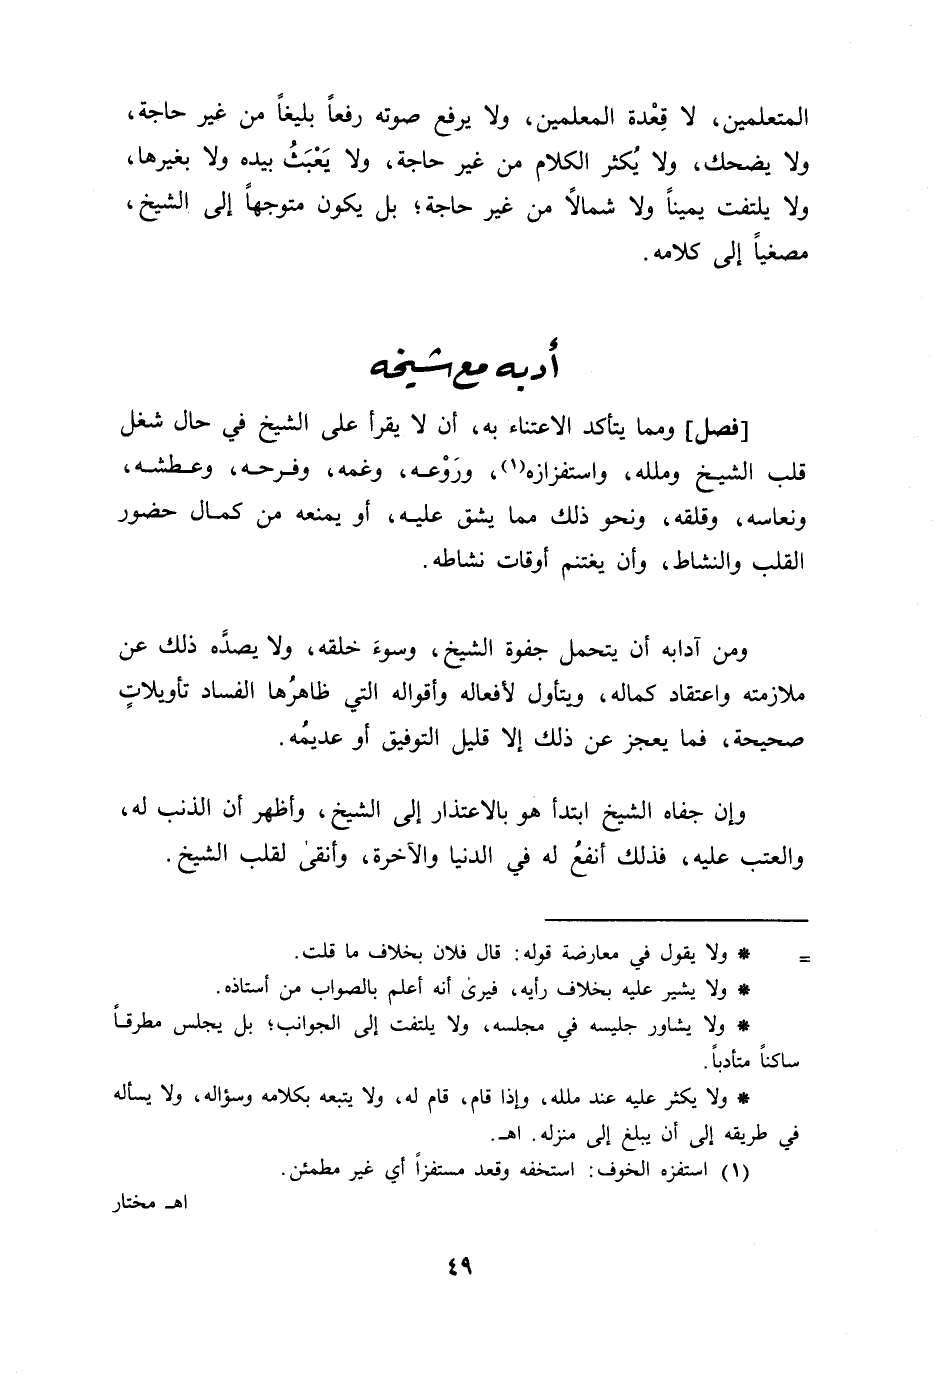 المتعلمين، لا قِعْدة المعلمين، ولا يرفع صوته رفعاً بليغاً من غير حاجة،
ولا يضحك، ولا يُكثر الكلام من غير حاجة، ولا يَعْبَثُ بيده ولا بغيرها،
ولا يلتفت يميناً ولا شمالًا من غير حاجة؛ بل يكون متوجهاً إلى الشيخ،
مصغياً إلى كلامه.
أدبه مع شيخه
[فصل] ومما يتأكد الاعتناء به، أن لا يقرأ على الشيخ في حال شغل
قلب الشيخ وملله، واستفزازه(١)، ورَوْعه، وغمه، وفرحه، وعطشه،
ونعاسه، وقلقه، ونحو ذلك مما يشق عليه، أو يمنعه من كمال حضور
القلب والنشاط، وأن يغتنم أوقات نشاطه.
ومن آدابه أن يتحمل جفوة الشيخ، وسوءَ خلقه، ولا يصدَّه ذلك عن
ملازمته واعتقاد كماله، ويتأول لأفعاله وأقواله التي ظاهرُها الفساد تأويلاتٍ
صحيحة، فما يعجز عن ذلك إلا قليل التوفيق أو عديمُه.
وإن جفاه الشيخ ابتدأ هو بالاعتذار إلى الشيخ، وأظهر أن الذنب له،
والعتب عليه، فذلك أنفعُ له في الدنيا والآخرة، وأنقىٰ لقلب الشيخ.
= * ولا يقول في معارضة قوله: قال فلان بخلاف ما قلت.
* ولا يشير عليه بخلاف رأيه، فيرىٰ أنه أعلم بالصواب من أستاذه.
* ولا يشاور جليسه في مجلسه، ولا يلتفت إلى الجوانب؛ بل يجلس مطرقاً
ساكناً متأدباً.
* ولا يكثر عليه عند ملله، وإذا قام، قام له، ولا يتبعه بكلامه وسؤاله، ولا يسأله
في طريقه إلى أن يبلغ إلى منزله. اهـ.
(١) استفزه الخوف: استخفه وقعد مستفزاً أي غير مطمئن.
اهـ مختار
٤٩